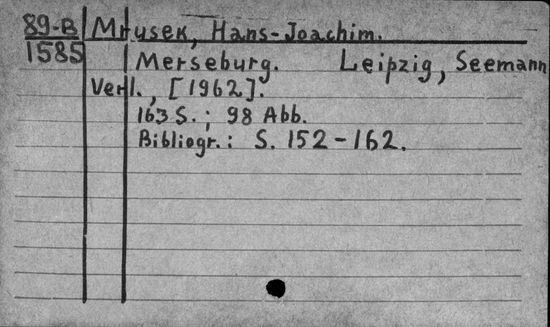 89-B Mrusek, Hans-Joachim.
1585 Merseburg. Leipzig, Seemann
Verl., [1962].
163 S.; 98 Abb.
Bibliogr.: S. 152-162.